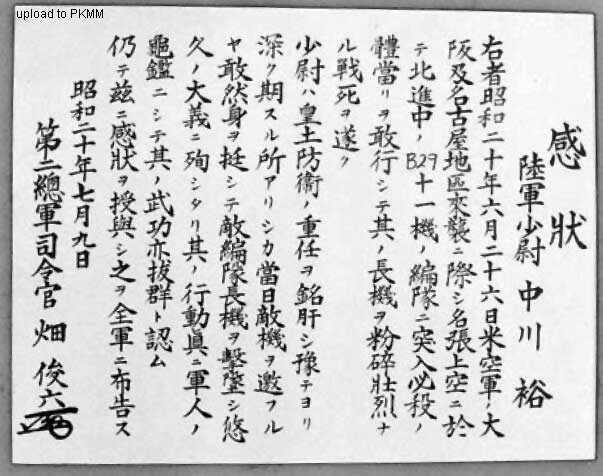 upload to PKMM
感狀
陸軍少尉 中川裕
右者昭和二十年六月二十六日米空軍ノ大
阪及名古屋地區來襲ニ際シ名張上空ニ於
テ北進中ノB29十一機ノ編隊ニ突入必殺ノ
體當リヲ敢行シテ其ノ長機ヲ粉碎壯烈ナ
ル戦死ヲ遂ク
少尉ハ皇土防衞ノ重任ヲ銘肝シ豫テヨリ
深ク期スル所アリシカ當日敵機ヲ邀フル
ヤ敢然身ヲ挺シテ敵編隊長機ヲ擊墜シ悠
久ノ大義ニ殉シタリ其ノ行動眞ニ軍人ノ
龜鑑ニシテ其ノ武功亦拔群ト認ム
仍テ茲ニ感狀ヲ授與シ之ヲ全軍ニ布告ス
昭和二十年七月九日
第二總軍司令官 畑俊六